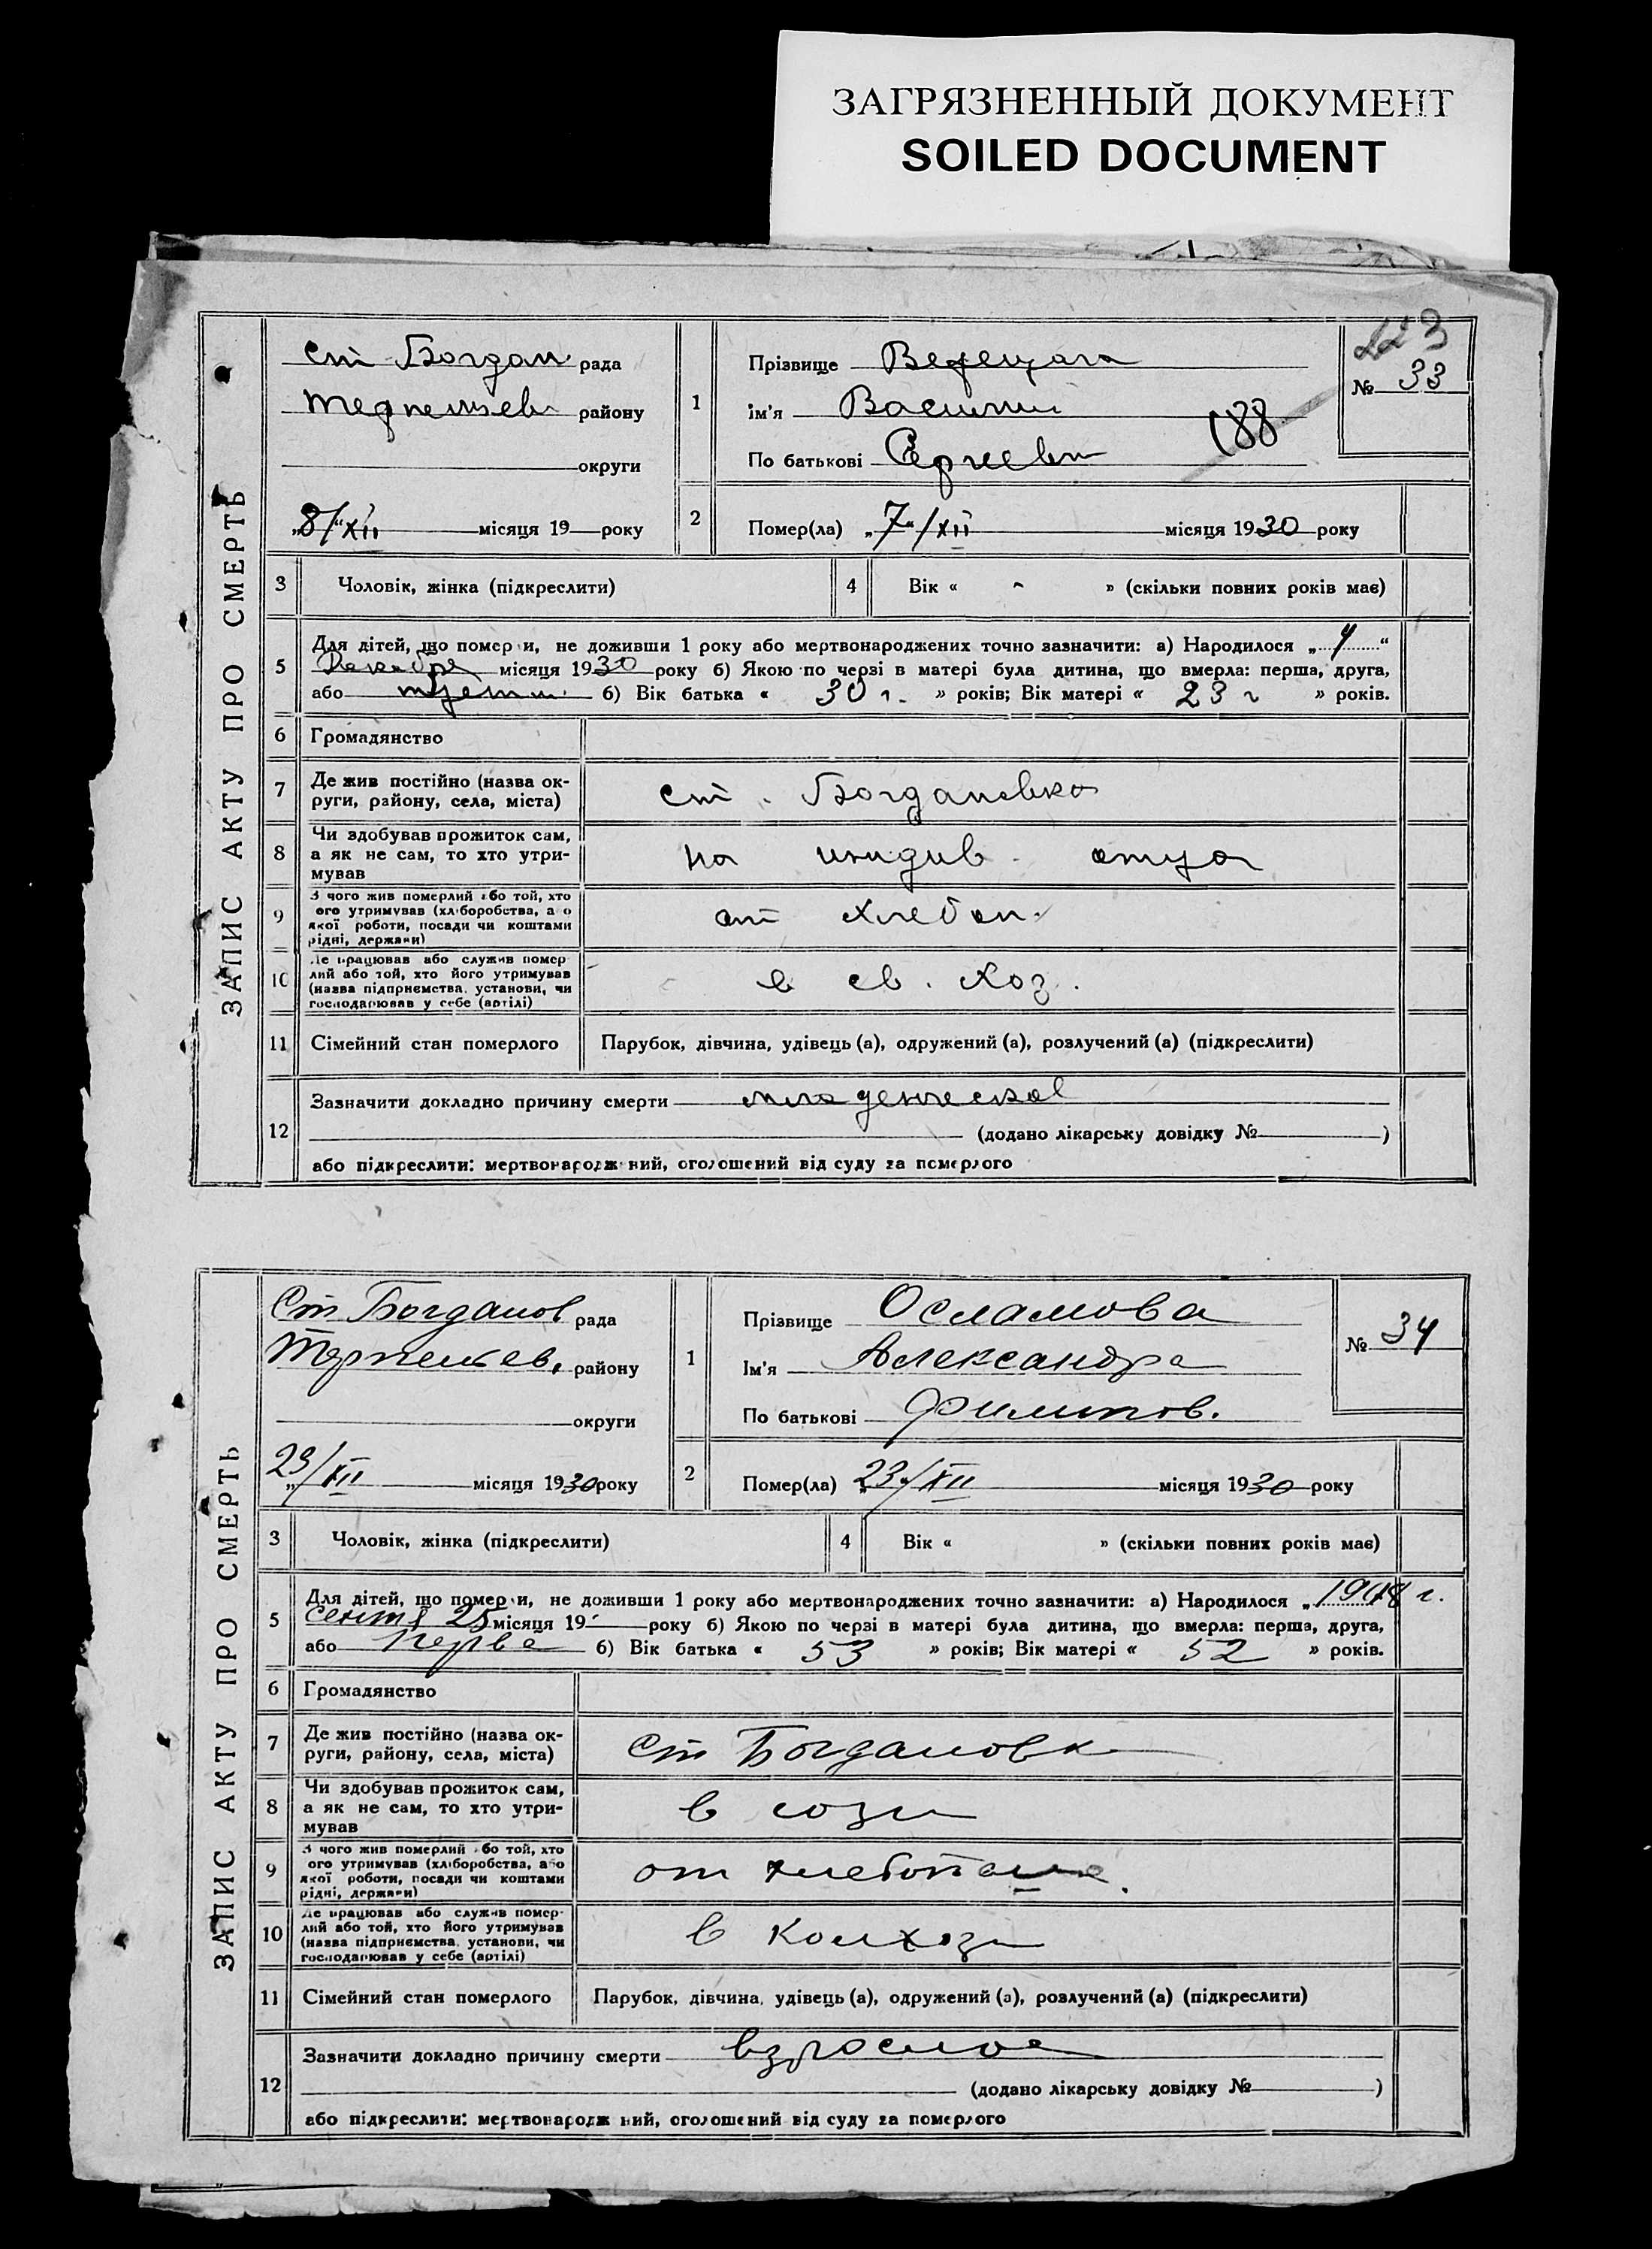 ЗАГРЯЗНЕННЫЙ ДОКУМЕНТ
SOILED DOCUMENT
ЗАПИС АКТУ ПРО СМЕРТЬ
ст Богдан рада
району
округи
„8/“ XII місяця 19 року
1
Прізвище
Ім'я Василий
По батькові Сергеевич
188
223
№ 33
2
Помер(ла) „7“/XII місяця 1930 року
3 Чоловік, жінка (підкреслити)
4 Вік « - » (скільки повних років має)
5
Для дітей, що померли, не доживши 1 року або мертвонароджених точно зазначити: а) Народилося „ “
Декабря місяця 1930 року б) Якою по черзі в матері була дитина, що вмерла: перша, друга,
або б) Вік батька « 30 г. » років; Вік матері « 23 г » років.
6 Громадянство
7
Де жив постійно (назва ок-
руги, району, села, міста)
ст. Богдановка
8
Чи здобував прожиток сам,
а як не сам, то хто утри-
мував
на иждив. отца
9
З чого жив померлий або той, хто
його утримував (хліборобства, або
якої роботи, посади чи коштами
рідні, держави)
от хлебоп.
10
Де працював або служив помер-
лий або той, хто його утримував
(назва підприємства, установи, чи
господарював у себе (артілі)
в св. хоз.
11 Сімейний стан померлого
Парубок, дівчина, удівець (а), одружений (а), розлучений (а) (підкреслити)
12
Зазначити докладно причину смерти
(додано лікарську довідку № )
або підкреслити: мертвонароджений, оголошений від суду за померлого
ЗАПИС АКТУ ПРО СМЕРТЬ
Ст Богданов рада
району
округи
„23/XII місяця 1930 року
1
Прізвище Осламова
Ім'я Александра
По батькові Филипов.
№ 34
2
Помер(ла) „23/XII місяця 1930 року
3 Чоловік, жінка (підкреслити)
4 Вік « » (скільки повних років має)
5
Для дітей, що померли, не доживши 1 року або мертвонароджених точно зазначити: а) Народилося „ г.
25 місяця 19 року б) Якою по черзі в матері була дитина, що вмерла: перша, друга,
або перва б) Вік батька « 53 » років; Вік матері « 52 » років.
6 Громадянство
7
Де жив постійно (назва ок-
руги, району, села, міста)
Ст Богдановк
8
Чи здобував прожиток сам,
а як не сам, то хто утри-
мував
в
9
З чого жив померлий або той, хто
його утримував (хліборобства, або
якої роботи, посади чи коштами
рідні, держави)
от
10
Де працював або служив помер-
лий або той, хто його утримував
(назва підприємства, установи, чи
господарював у себе (артілі)
в колхозе
11 Сімейний стан померлого
Парубок, дівчина, удівець (а), одружений (а), розлучений (а) (підкреслити)
12
Зазначити докладно причину смерти взрослое
(додано лікарську довідку № )
або підкреслити: мертвонароджений, оголошений від суду за померлого